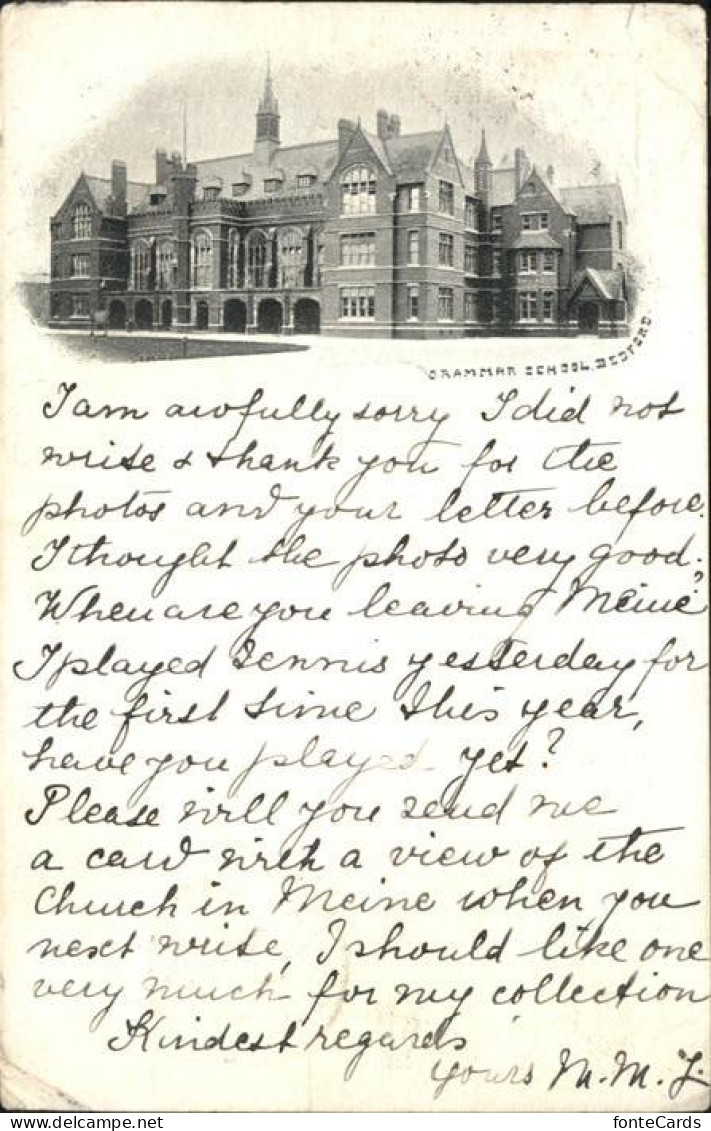 GRAMMAR SCHOOL, BEDFORD.
I am awfully sorry I did not
write & thank you for the
photos and your letter before.
I thought the photo very good.
When are you leaving Meine?
I played Tennis yesterday for
the first time this year,
have you played yet?
Please will you send me
a card with a view of the
Church in Meine when you
next write, I should like one
very much for my collection
Kindest regards
yours M. M. J.
fonteCards